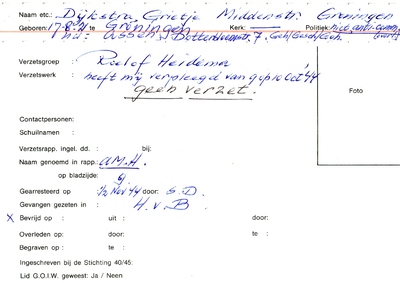 Naam etc.: Dijkstra, Grietje Middenstr. Groningen
Geboren: 17-8-'11 te Groningen Kerk: —— Politiek: niet anti-comm.
thd: Assen, 7, Geh/Gesch/
Verzetsgroep : Roelof Heidema
Verzetswerk heeft mij verpleegd van '44
geen verzet.
Foto
Contactpersonen:
Schuilnaam :
Verzetsrapp. ingel. dd. : bij:
Naam genoemd in rapp.: A.M.H.
op bladzijde: 6j
Gearresteerd op 1/2 Nov '44 door: S.D.
Gevangen gezeten in : H.v.B
X Bevrijd op : uit : door:
Overleden op: door: te :
Begraven op : te :
Ingeschreven bij de Stichting 40/45:
Lid G.O.I.W. geweest: Ja / Neen